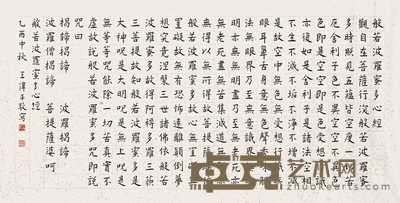 般若波羅蜜多心經
觀自在菩薩行深般若波羅蜜
多時照見五蘊皆空度一切苦
厄舍利子色不異空空不異色
色即是空空即是色受想行識
亦復如是舍利子是諸法空相
不生不滅不垢不淨不增不減
是故空中無色無受想行識無
眼耳鼻舌身意無色聲香味觸
法無眼界乃至無意識界無無
明亦無無明盡乃至無老死亦
無老死盡無苦集滅道無智亦
無得以無所得故菩提薩埵依
般若波羅蜜多故心無罣礙無
罣礙故無有恐怖遠離顛倒夢
想究竟涅槃三世諸佛依般若
波羅蜜多故得阿耨多羅三藐
三菩提故知般若波羅蜜多是
大神咒是大明咒是無上咒是
無等等咒能除一切苦真實不
虛故說般若波羅蜜多咒即說
咒曰
揭諦揭諦 波羅揭諦
波羅僧揭諦 菩提薩婆呵
般若波羅蜜多心經
乙酉中秋 王 敬寫
卓克艺术网